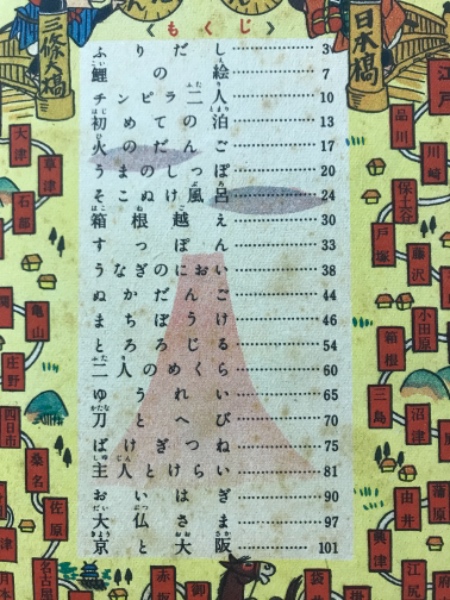 三條大橋
日本橋
《もくじ》
ふりだし 3
鯉の絵 7
チンピラ二人 10
初めての泊 13
17
20
そこぬけ風呂 24
箱根越え 30
すっぽん 33
うなぎのにおい 38
ぬかだんご 44
まちぼうけ 46
とろろじる 54
二人のめくら 60
ゆうれい 65
刀とへび 70
ばけぎつね 75
主人とけらい 81
おいはぎ 90
大仏さま 97
京と大阪 101
江戸
品川
川崎
保土谷
戸塚
藤沢
小田原
箱根
三島
沼津
蒲原
由井
興津
江尻
大津
草津
石部
亀山
庄野
四日市
桑名
佐原
名古屋
赤坂
御
袋井